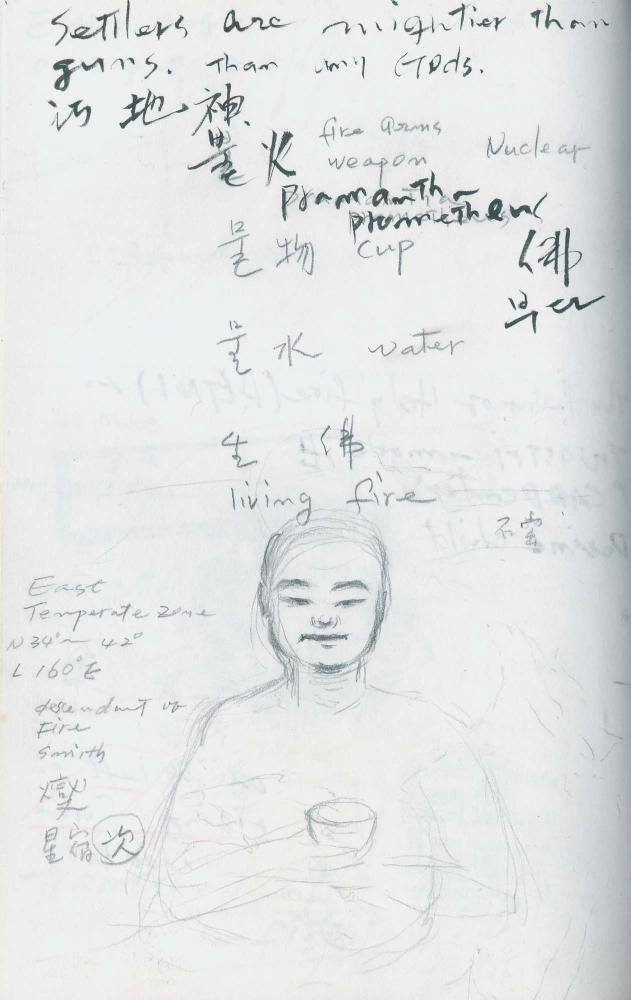 Settlers are mightier than
guns. Than any GODs.
地 神
불 火 fire arms
weapon Nuclear
pramantha
prometheus
물 物 cup
佛
부다
물 水 water
生 佛
living fire
East
Temperate zone
N 34°~ 42°
L 160°E
descendant of
Fire
Smith
星宿 次